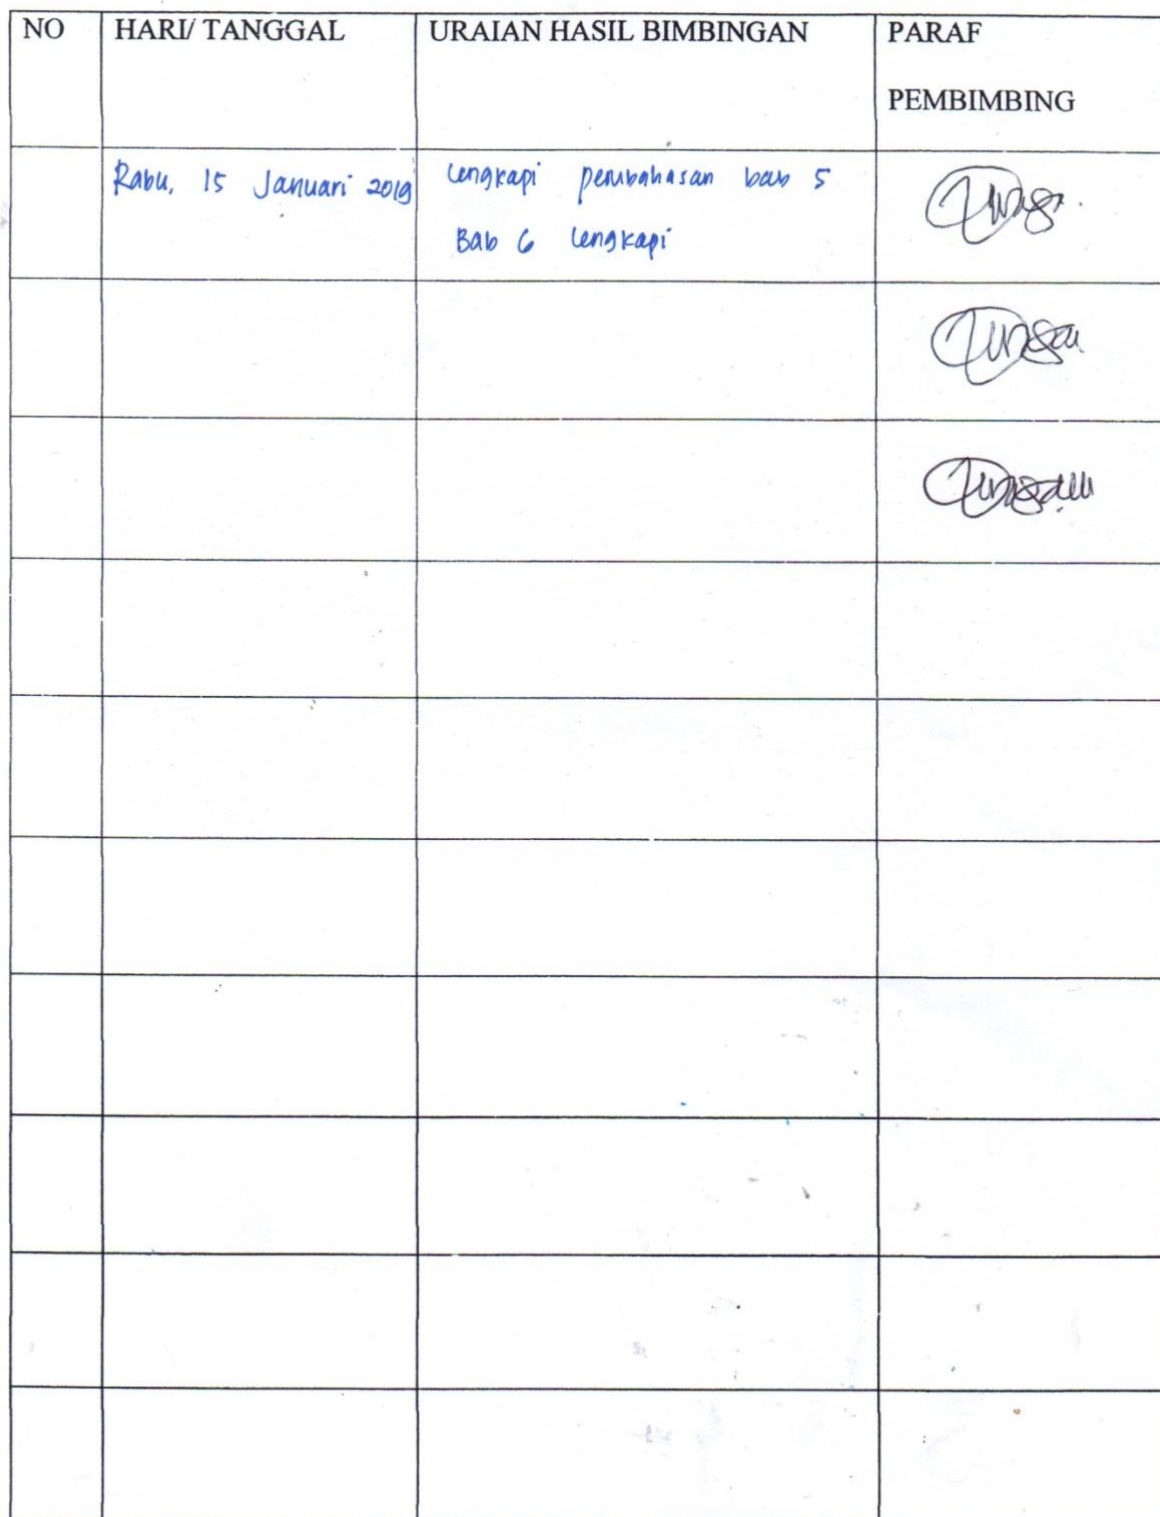 NO HARI/ TANGGAL URAIAN HASIL BIMBINGAN PARAF
PEMBIMBING
Rabu, 15 Januari 2019 Lengkapi pembahasan bab 5
Bab 6 Lengkapi